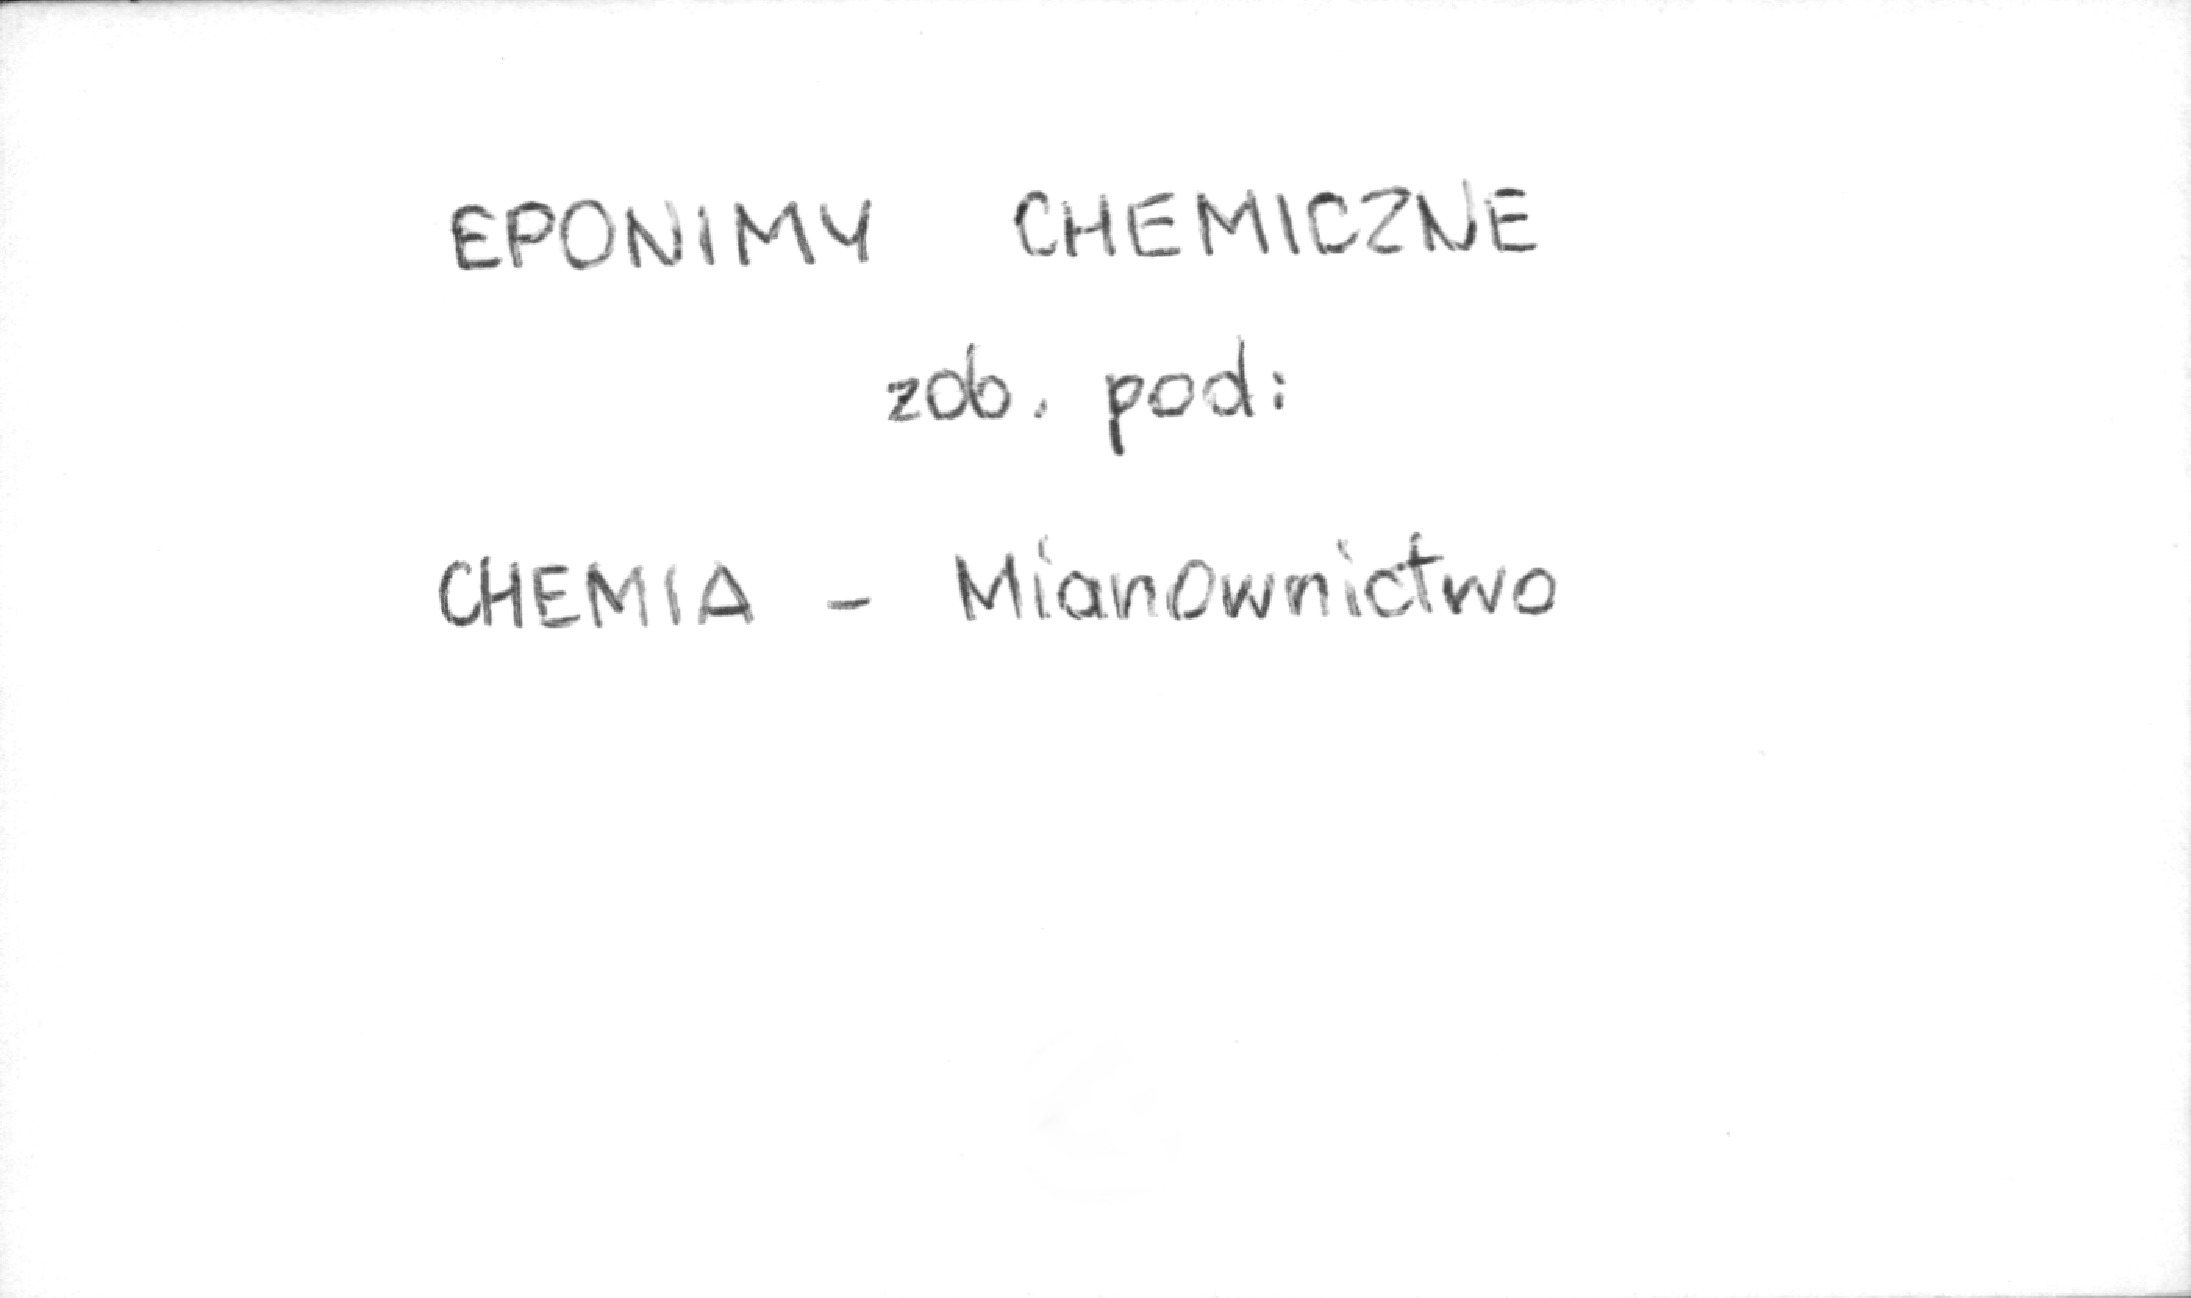 EPONIMY CHEMICZNE
zob. pod:
CHEMIA - Mianownictwo